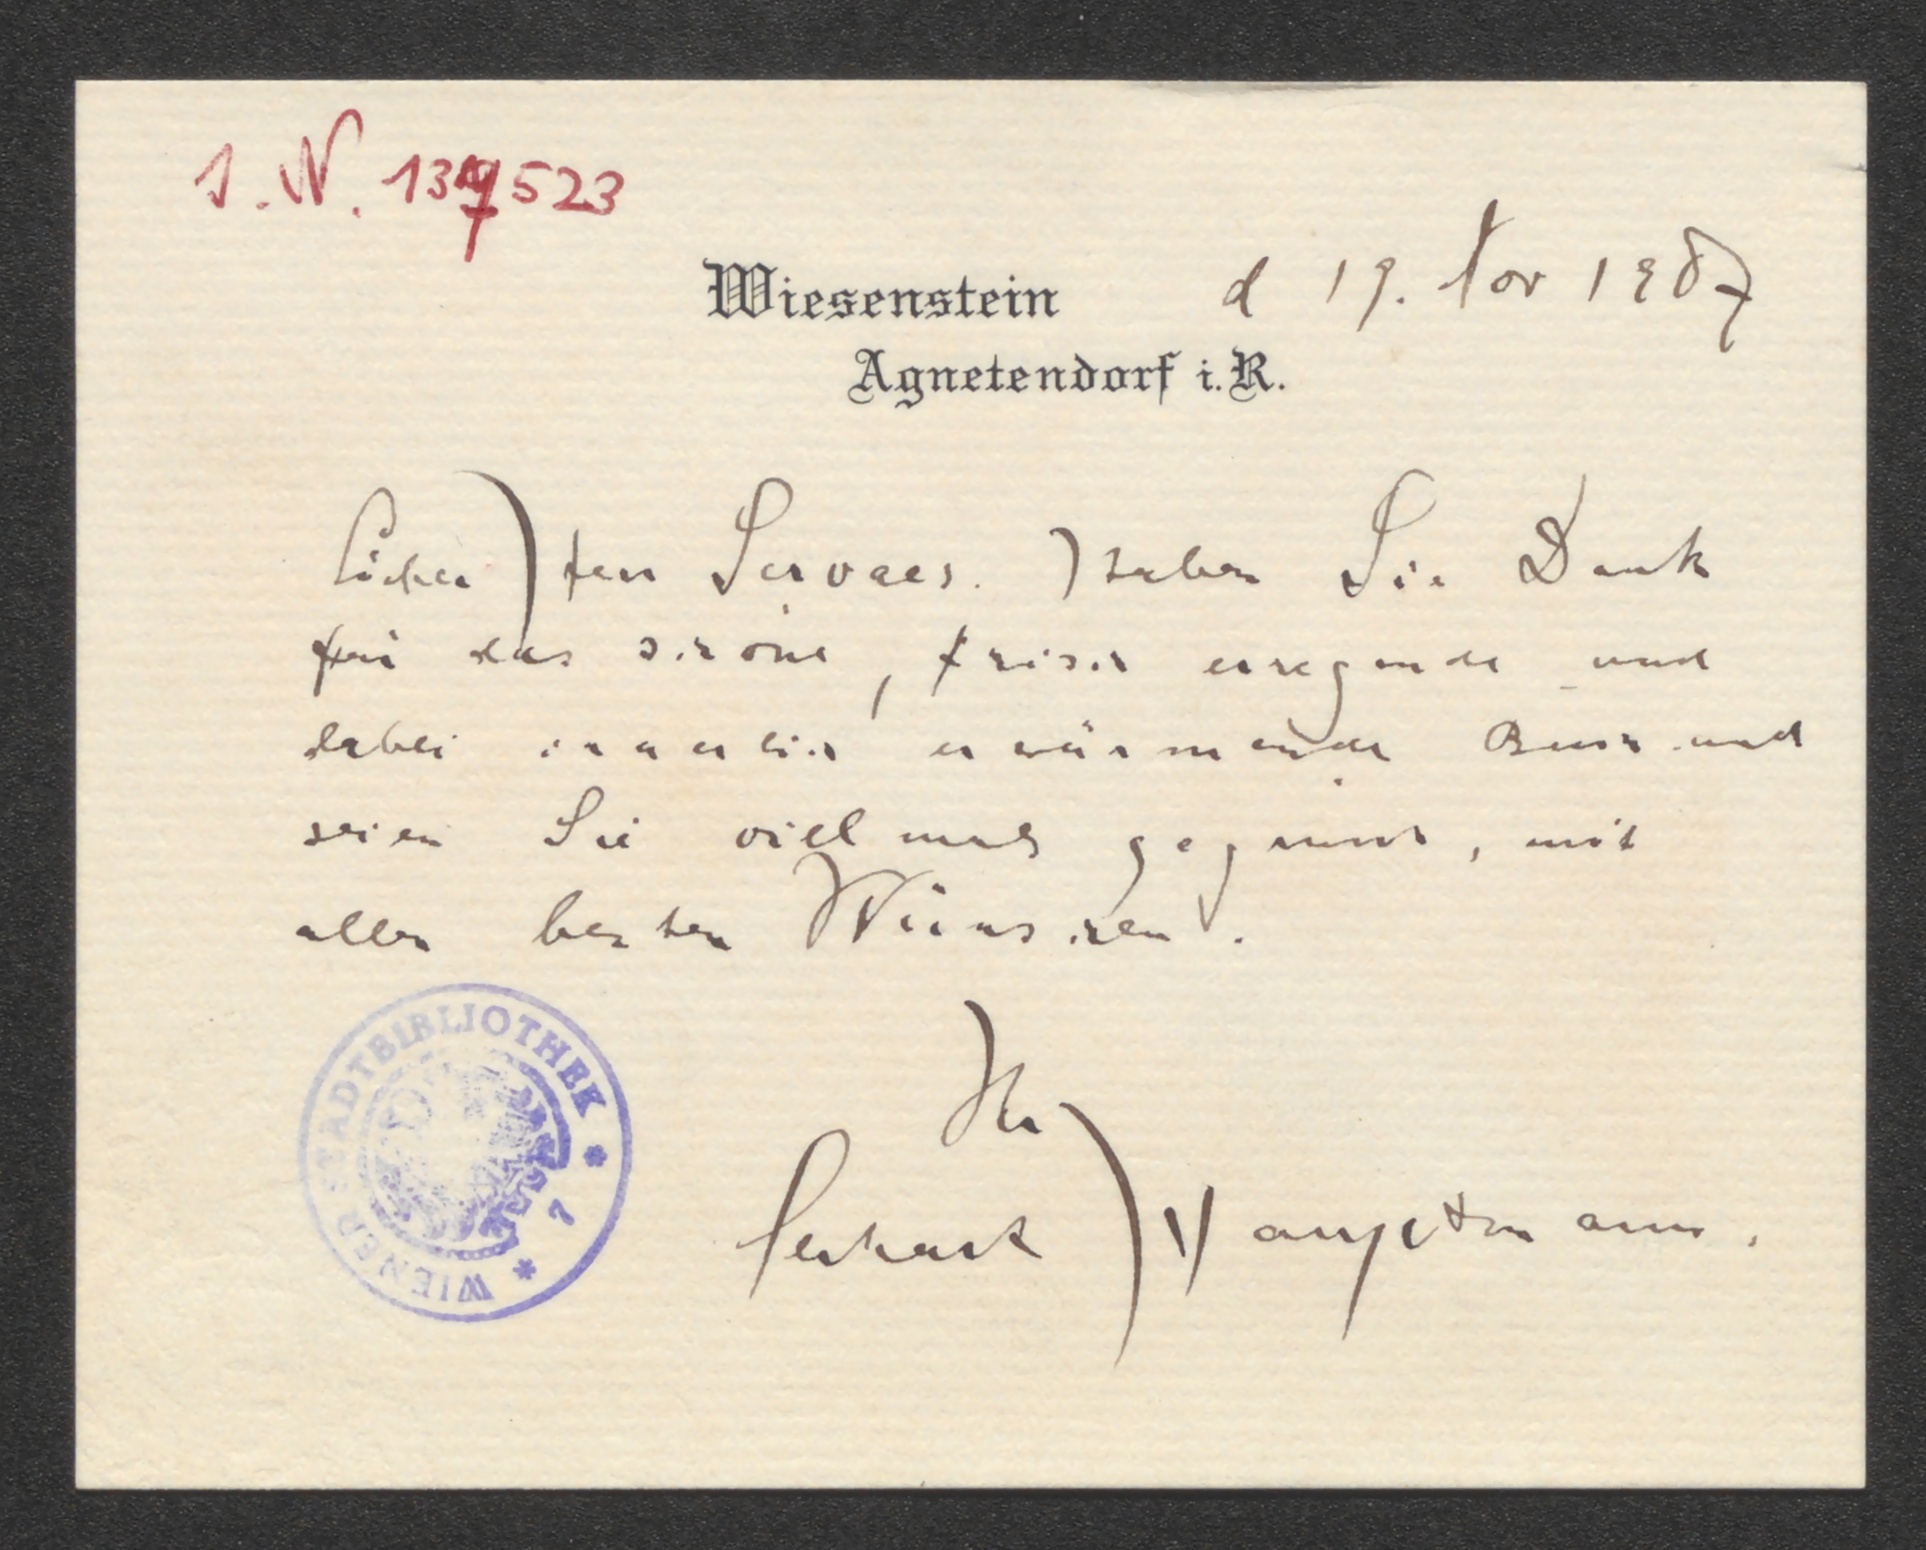 I. N. 137523
Wiesenstein d 19. Nov 1907
Agnetendorf i. R.
Lieber Herr Servaes. Haben Sie Dank
für das schöne, frisch erregende und
dabei innerlich erwärmende Buch und
seien Sie vielmals gegrüsst, mit
allen besten Wünschen.
Ihr
Gerhart Hauptmann.
WIENER STADTBIBLIOTHEK * 7 *